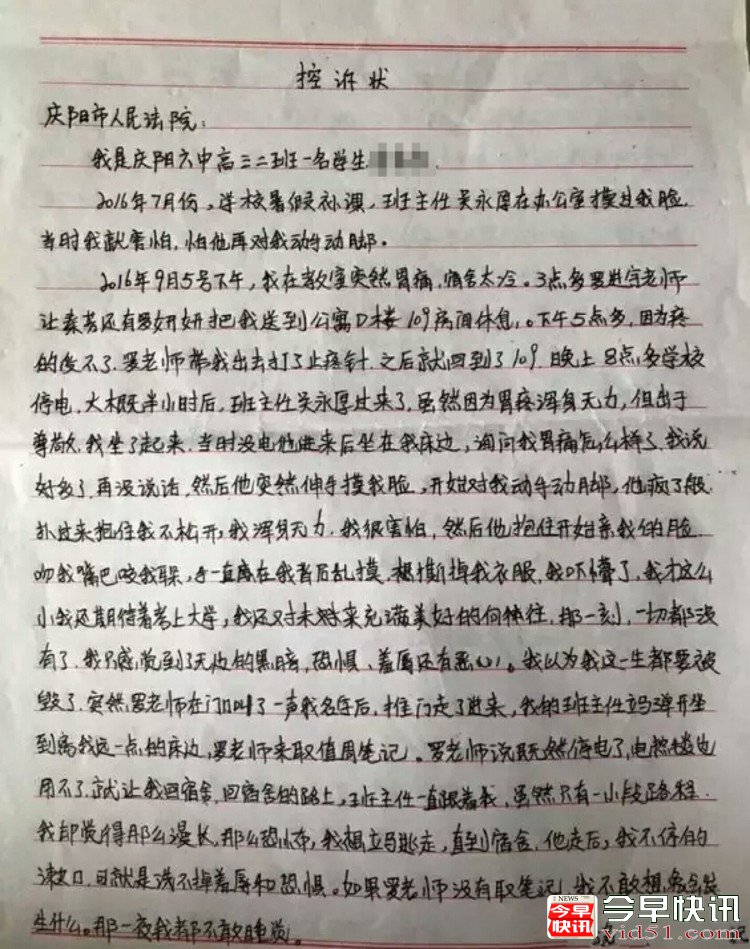 控诉状
庆阳市人民法院:
我是庆阳六中高三二班一名学生
2016年7月份，学校暑假补课，班主任吴永厚在办公室摸过我脸，
当时我就害怕，怕他再对我动手动脚。
2016年9月5号下午，我在教室突然胃痛，宿舍太冷。3点多罗进宇老师
让秦芳还有罗妍妍把我送到公寓D楼109房间休息。下午5点多，因为疼
的受不了，罗老师带我出去打了止疼针，之后就回到了109，晚上8点多学校
停电，大概半小时后，班主任吴永厚过来了，虽然因为胃疼浑身无力，但出于
尊敬，我坐了起来，当时没电他进来后坐在我床边，询问我胃痛怎么样了，我说
好多了，再没说话，然后他突然伸手摸我脸，开始对我动手动脚，他疯了般
扑过来抱住我不松开，我浑身无力，我很害怕，然后他抱住开始亲我的脸
吻我嘴巴咬我耳朵，手一直在我背后乱摸，想撕掉我衣服，我吓懵了，我才这么
小我还期待着考上大学，我还对未来充满美好的向往，那一刻，一切都没
有了，我只感觉到了无边的黑暗，恐惧、羞辱还有恶心。我以为我这一生都要被
毁了，突然罗老师在门口叫了一声我名字后，推门走了进来，我的班主任立马弹开坐
到离我远一点的床边，罗老师来取值周笔记。罗老师说既然停电了，电热毯也
用不了，就让我回宿舍，回宿舍的路上，班主任一直跟着我，虽然只有一小段路程，
我却觉得那么漫长，那么恐怖，我想立马逃走，直到宿舍，他走后，我不停的
漱口，可就是洗不掉羞辱和恐惧。如果罗老师没有取笔记，我不敢想会发
生什么。那一夜我都不敢睡觉。
NEWS
今早快讯
今早快讯
vid51.com